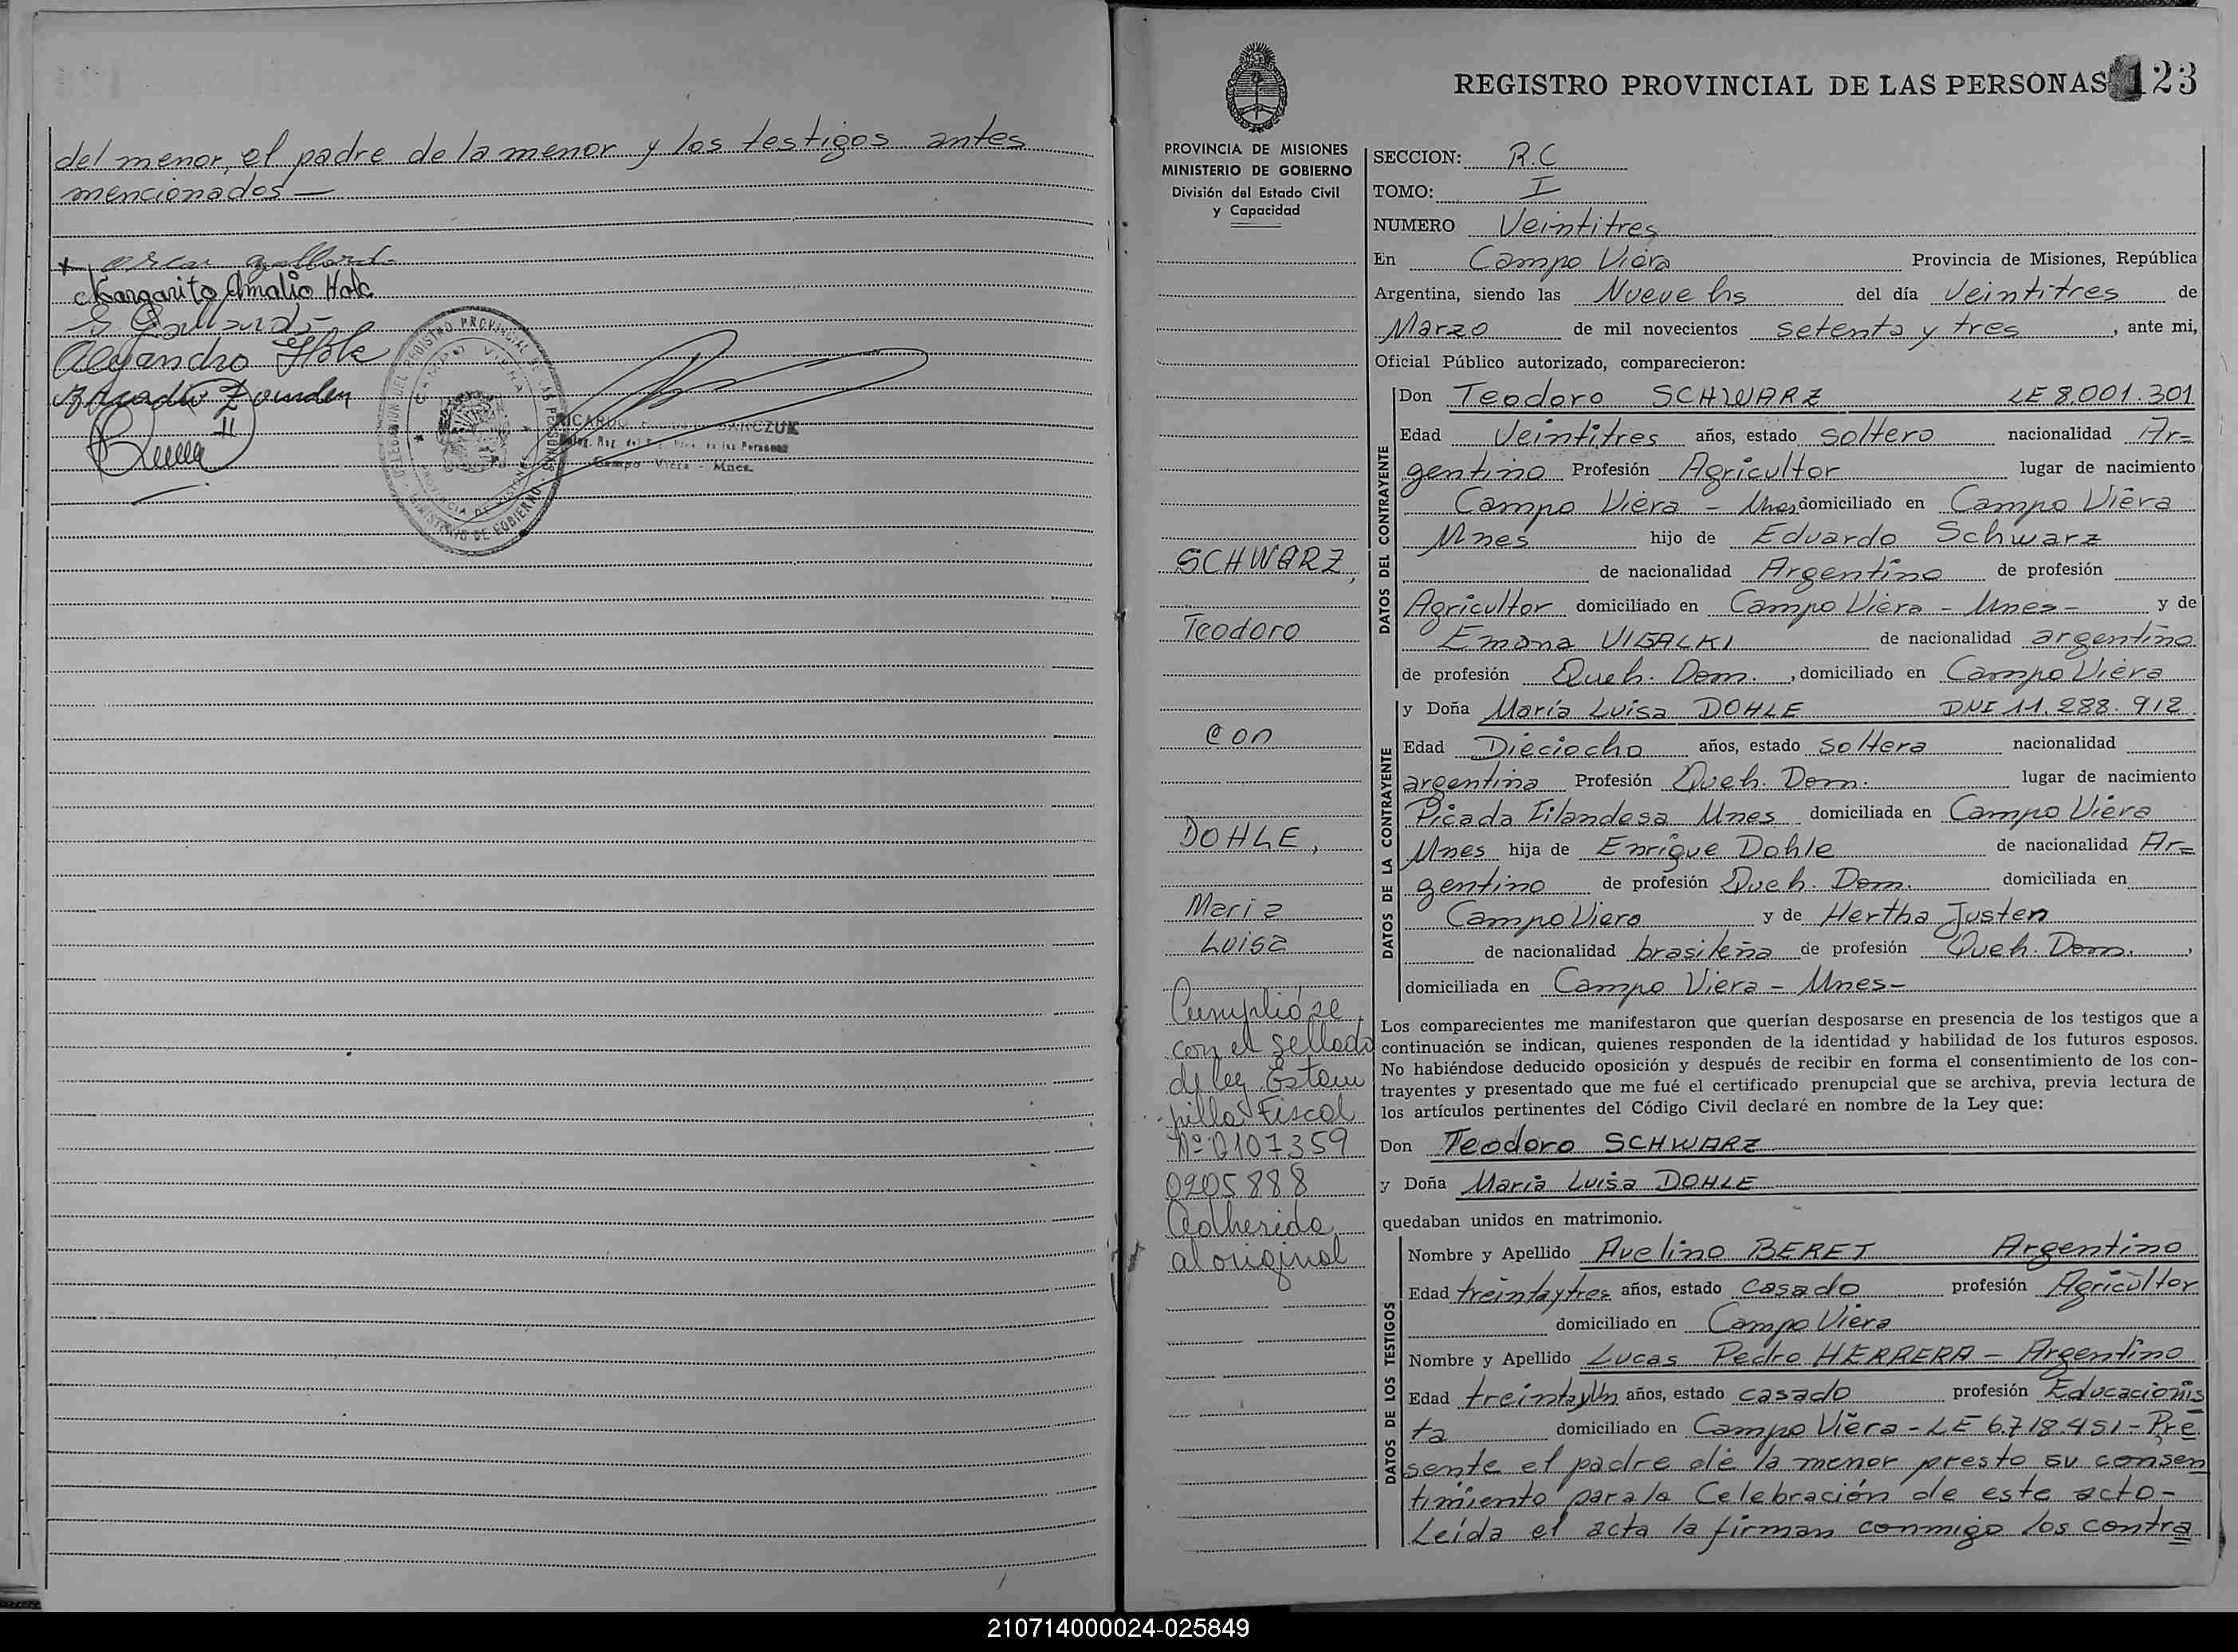 del menor, el padre de la menor y los testigos antes
mencionados —
Margarito Amalio Hok
Alejandro Hok
RICARDO
Campo Viera - Mnes.
REGISTRO PROVINCIAL DE LAS PERSONAS 123
PROVINCIA DE MISIONES
MINISTERIO DE GOBIERNO
División del Estado Civil
y Capacidad
SCHWARZ,
Teodoro
con
DOHLE,
Maria
Luisa
Cumplióse
con el sellado
de ley Estam
pilla Fiscal
Nº 0107359
0205888
Adherida
al original
SECCION: R.C
TOMO: I
NUMERO Veintitres
En Campo Viera Provincia de Misiones, República
Argentina, siendo las Nueve hs del día Veintitres de
Marzo de mil novecientos setenta y tres, ante mi,
Oficial Público autorizado, comparecieron:
DATOS DEL CONTRAYENTE
Don Teodoro SCHWARZ LE 8.001.301
Edad Veintitres años, estado soltero nacionalidad Ar=
gentino Profesión Agricultor lugar de nacimiento
Campo Viera - Mnes domiciliado en Campo Viera
Mnes hijo de Eduardo Schwarz
de nacionalidad Argentino de profesión
Agricultor domiciliado en Campo Viera - Mnes - y de
Emona VIGALKI de nacionalidad argentina
de profesión Queh. Dom., domiciliado en Campo Viera
DATOS DE LA CONTRAYENTE
y Doña María Luisa DOHLE DNI 11.288.912
Edad Dieciocho años, estado soltera nacionalidad
argentina Profesión Queh. Dom. lugar de nacimiento
Picada Filandesa Mnes domiciliada en Campo Viera
Mnes hija de Enrique Dohle de nacionalidad Ar=
gentino de profesión Queh. Dom. domiciliada en
Campo Viera y de Hertha Justen
de nacionalidad brasileña de profesión Queh. Dom.,
domiciliada en Campo Viera - Mnes -
Los comparecientes me manifestaron que querían desposarse en presencia de los testigos que a
continuación se indican, quienes responden de la identidad y habilidad de los futuros esposos.
No habiéndose deducido oposición y después de recibir en forma el consentimiento de los con-
trayentes y presentado que me fué el certificado prenupcial que se archiva, previa lectura de
los artículos pertinentes del Código Civil declaré en nombre de la Ley que:
Don Teodoro SCHWARZ
y Doña María Luisa DOHLE
quedaban unidos en matrimonio.
DATOS DE LOS TESTIGOS
Nombre y Apellido Avelino BERET Argentino
Edad treintaytres años, estado casado profesión Agricultor
domiciliado en Campo Viera
Nombre y Apellido Lucas Pedro HERRERA - Argentino
Edad treintayUn años, estado casado profesión Educacionis
ta domiciliado en Campo Viera - LE 6.718.451 - Pre
sente el padre de la menor presto su consen
timiento para la Celebración de este acto -
Leída el acta la firman conmigo los contra
210714000024-025849